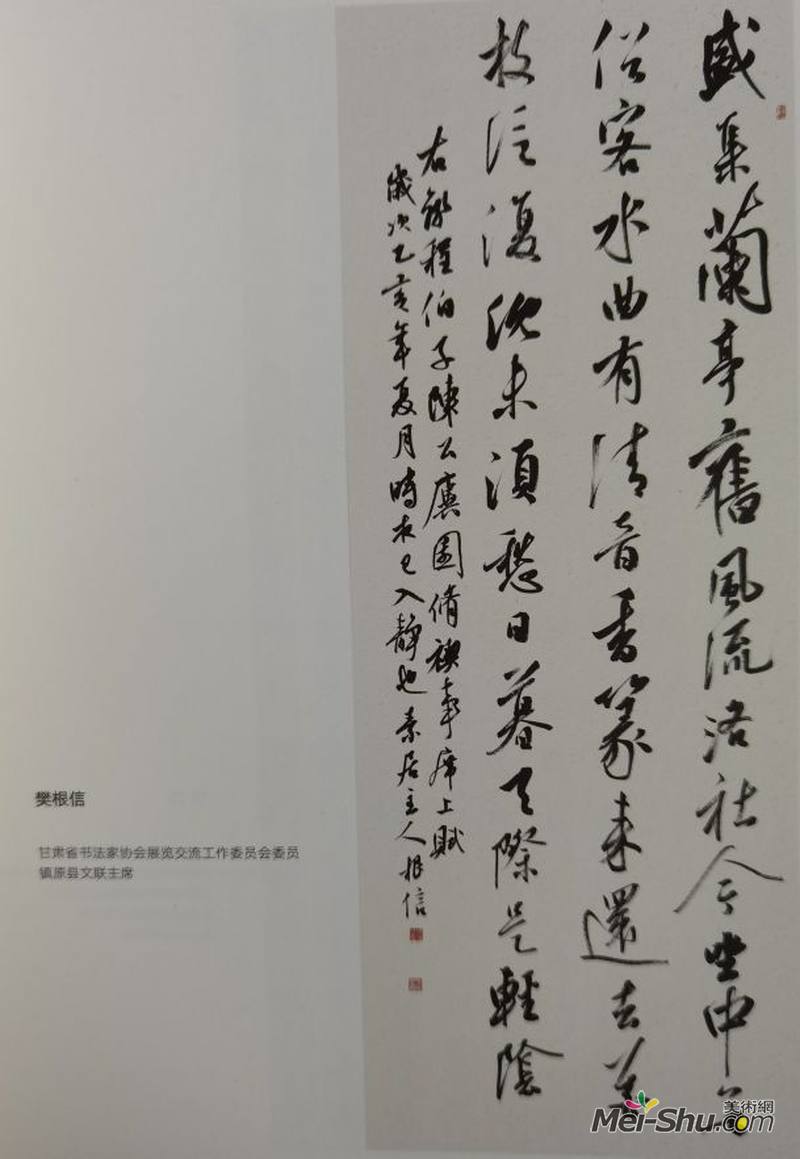 盛集蘭亭舊風流洛社今坐中
俗客水曲有清音香篆来還去花
枝泛復沈未須愁日暮天際是輕陰
右錄程伯子陳公廙園脩禊事席上賦
歲次己亥年夏月時夜已入靜也素居主人根信
樊根信
甘肃省书法家协会展览交流工作委员会委员
镇原县文联主席
美術網
Mei-Shu.com